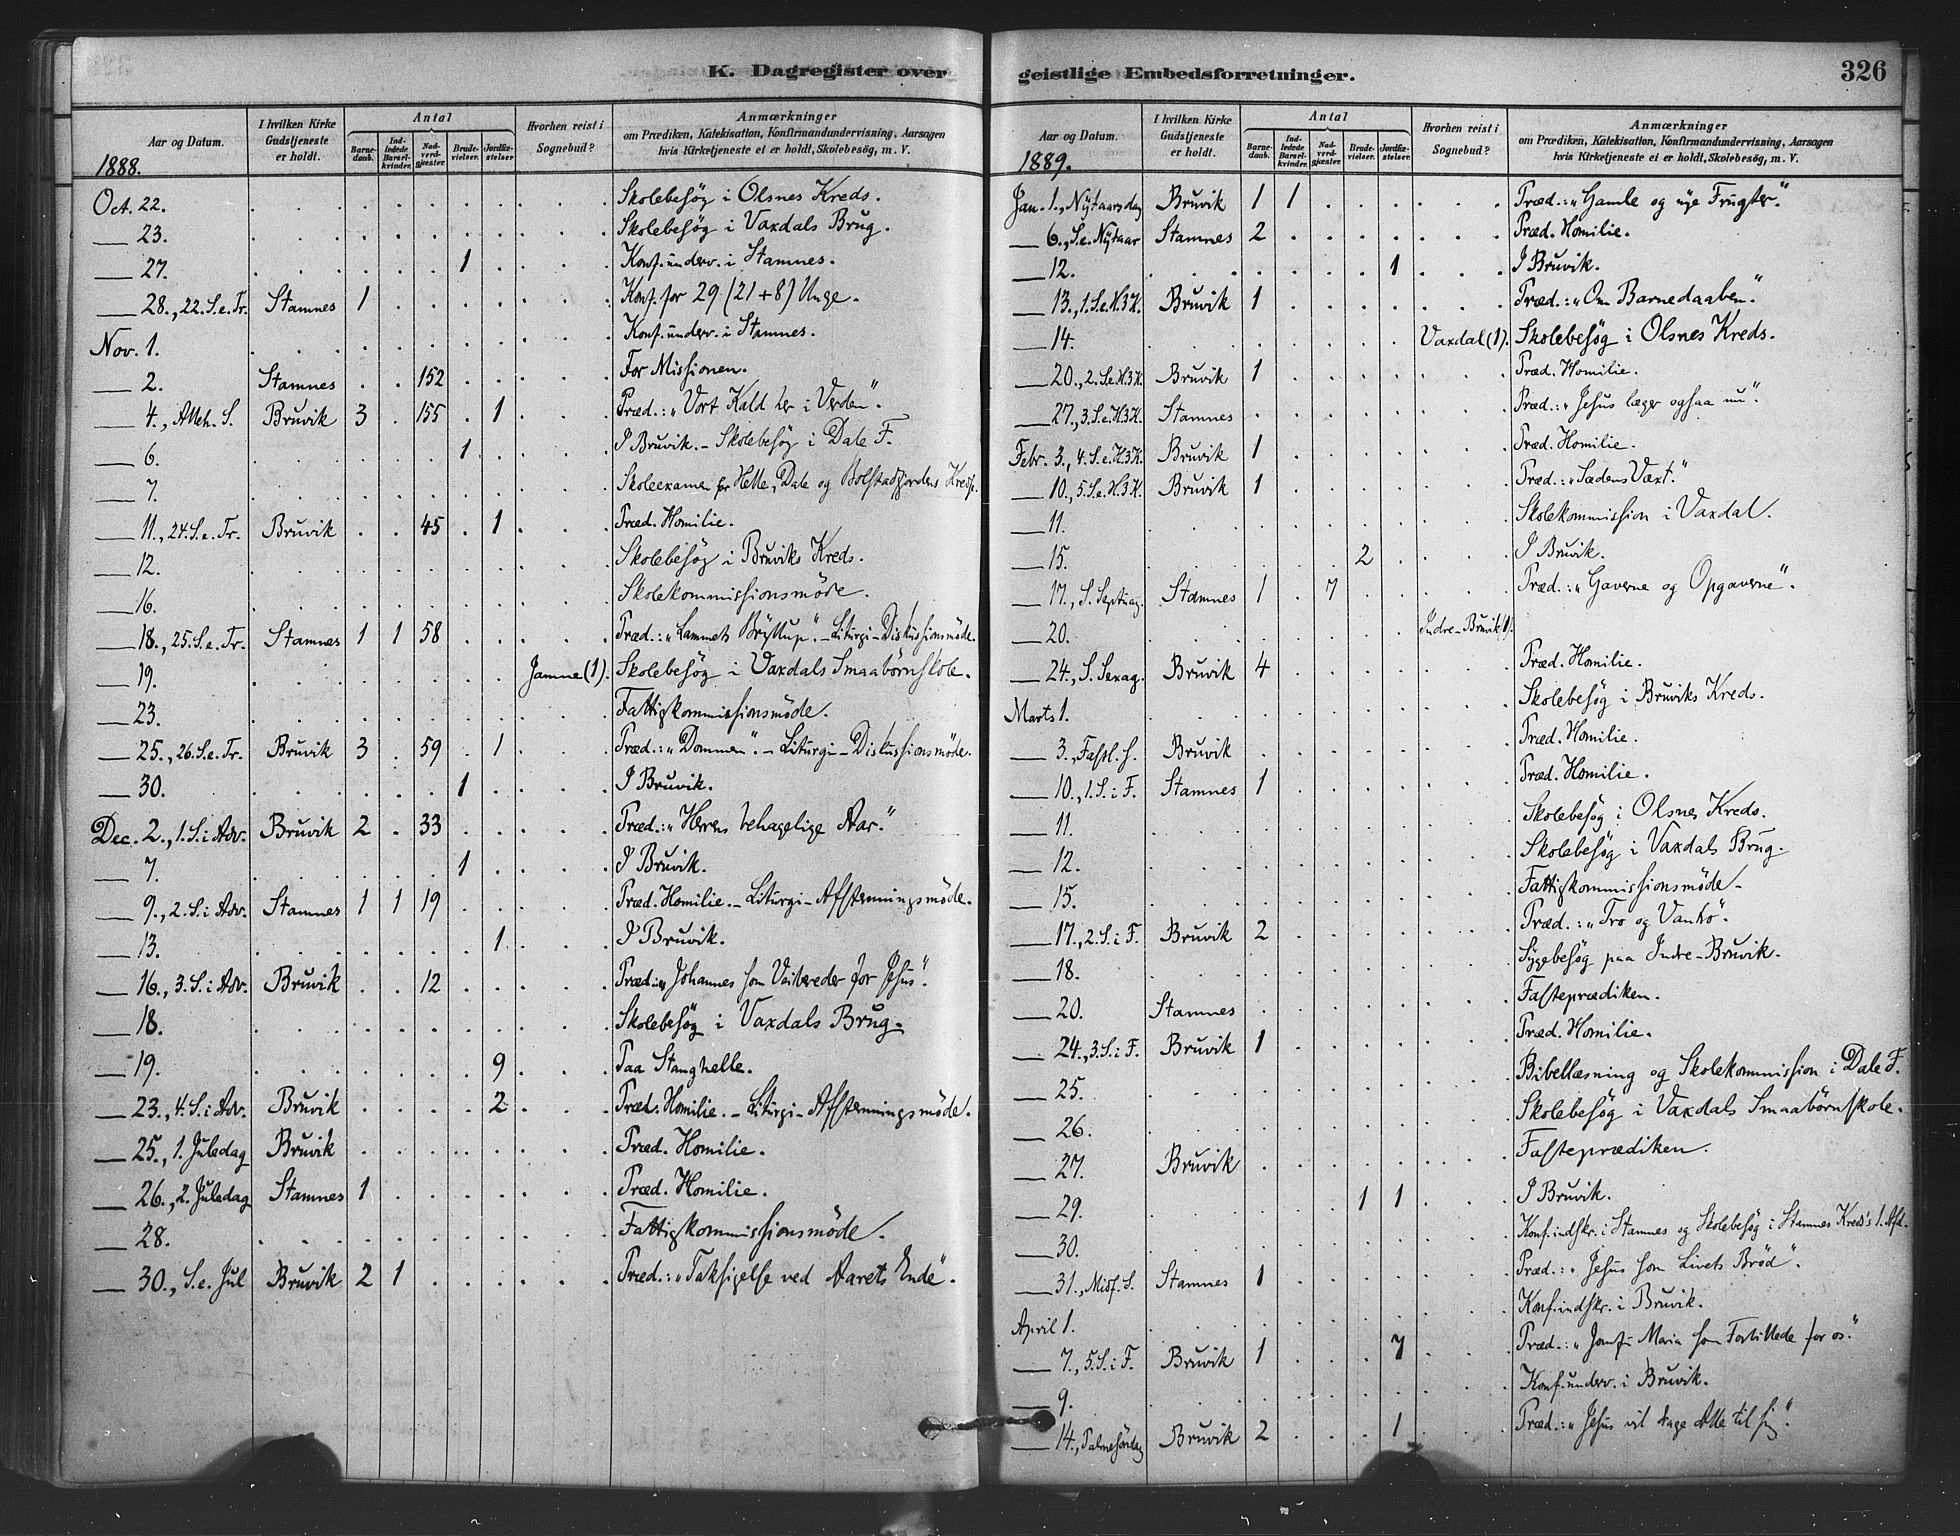 K. Dagregister over
Aar og Datum.
I hvilken Kirke Gudstjeneste er holdt.
Antal
Barnedaab.
Indledede Barselkvinder.
Nadverdgjæster.
Brudevielser.
Jordfæstelser.
Hvorhen reist i Sognebud?
Anmærkninger
om Prædiken, Katekisation, Konfirmandundervisning, Aarsagen
hvis Kirketjeneste ei er holdt, Skolebesøg, m. V.
1888.
Oct. 22. Skolebesøg i Olsnes Kreds.
— 23. Skolebesøg i Vaxdals Brug.
— 27. 1 Konf.underv. i Stamnes.
— 28., 22. S. e. Tr. Stamnes 1 Konf. for 29 (21+8) Unge.
Nov. 1. Konf.underv. i Stamnes.
— 2. Stamnes 152 For Missionen.
— 4., Alleh. S. Bruvik 3 155 1 Præd.: „Vort Kald her i Verden“.
— 6. 1 I Bruvik. – Skolebesøg i Dale F.
— 7. Skoleexamen for Helle, Dale og Bolstadfjordens Kredse.
— 11., 24. S. e. Tr. Bruvik 45 1 Præd. Homilie.
— 12. Skolebesøg i Bruviks Kreds.
— 16. Skolekommissionsmøde.
— 18., 25. S. e. Tr. Stamnes 1 1 58 Præd.: „Lammets Bryllup“. – Liturgi – Diskussionsmøde.
— 19. Jamne (1). Skolebesøg i Vaxdals Smaabørnskole.
— 23. Fattigkommissionsmøde.
— 25., 26. S. e. Tr. Bruvik 3 59 1 Præd.: „Dommen“. – Liturgi – Diskussionsmøde.
— 30. 1 I Bruvik.
Dec. 2., 1. S. i Adv. Bruvik 2 33 Præd.: „Herrens behagelige Aar.“
— 7. 1 I Bruvik.
— 9., 2. S. i Adv. Stamnes 1 1 19 Præd. Homilie. – Liturgi – Afstemningsmøde.
— 13. 1 I Bruvik.
— 16., 3. S. i Adv. Bruvik 12 Præd.: „Johannes som Veibereder for Jesus“.
— 18. Skolebesøg i Vaxdals Brug.
— 19. 9 Paa Stanghelle.
— 23., 4. S. i Adv. Bruvik 2 Præd. Homilie. – Liturgi – Afstemningsmøde.
— 25., 1. Juledag Bruvik Præd. Homilie.
— 26., 2. Juledag Stamnes 1 Præd. Homilie.
— 28. Fattigkommissionsmøde.
— 30., S. e. Jul Bruvik 2 1 Præd.: „Taksigelse ved Aarets Ende“.
geistlige Embedsforretninger.
326
Aar og Datum.
I hvilken Kirke Gudstjeneste er holdt.
Antal
Barnedaab.
Indledede Barselkvinder.
Nadverdgjæster.
Brudevielser.
Jordfæstelser.
Hvorhen reist i Sognebud?
Anmærkninger
om Prædiken, Katekisation, Konfirmandundervisning, Aarsagen
hvis Kirketjeneste ei er holdt, Skolebesøg, m. V.
1889.
Jan. 1., Nytaarsdag Bruvik 1 1 Præd.: „Gamle og nye Frugter“.
— 6., S. e. Nytaar Stamnes 2 Præd. Homilie.
— 12. 1 I Bruvik.
— 13., 1. S. e. H.3K. Bruvik 1 Præd.: „Om Barnedaaben“.
— 14. Vaxdal (1). Skolebesøg i Olsnes Kreds.
— 20., 2. S. e. H.3K. Bruvik 1 Præd. Homilie.
— 27., 3. S. e. H.3K. Stamnes Præd.: „Jesus læger ogsaa nu“.
Febr. 3., 4. S. e. H.3K. Bruvik 1 Præd. Homilie.
— 10., 5. S. e. H.3K. Bruvik 1 Præd.: „Sædens Væxt.“
— 11. Skolekommission i Vaxdal.
— 15. 2 I Bruvik.
— 17., S. Septuag. Stamnes 1 7 Præd.: „Gaverne og Opgaverne“.
— 20. Indre-Bruvik (1).
— 24., S. Sexag. Bruvik 4 Præd. Homilie.
Marts 1. Skolebesøg i Bruviks Kreds.
— 3., Fastl. S. Bruvik Præd. Homilie.
— 10., 1. S. i F. Stamnes 1 Præd. Homilie.
— 11. Skolebesøg i Olsnes Kreds.
— 12. Skolebesøg i Vaxdals Brug.
— 15. Fattigkommissionsmøde –
— 17., 2. S. i F. Bruvik 2 Præd.: „Tro og Vantro“.
— 18. Sygebesøg paa Indre-Bruvik.
— 20. Stamnes Fasteprædiken.
— 24., 3. S. i F. Bruvik 1 Præd. Homilie.
— 25. Bibellæsning og Skolekommission i Dale F.
— 26. Skolebesøg i Vaxdals Smaabørnskole.
— 27. Bruvik Fasteprædiken.
— 29. 1 1 I Bruvik.
— 30. Konf.indskr. i Stamnes og Skolebesøg i Stamnes Kreds's 1. Afd.
— 31., Midf. S. Stamnes 1 Præd.: „Jesus som Livets Brød“.
April 1. Konf.indskr. i Bruvik.
— 7., 5. S. i F. Bruvik 1 7 Præd.: „Jomfru Maria som Forbillede for os.“
— 9. Konf.underv. i Bruvik.
— 14., Palmesøndag Bruvik 2 1 Præd.: „Jesus vil drage Alle til sig“.